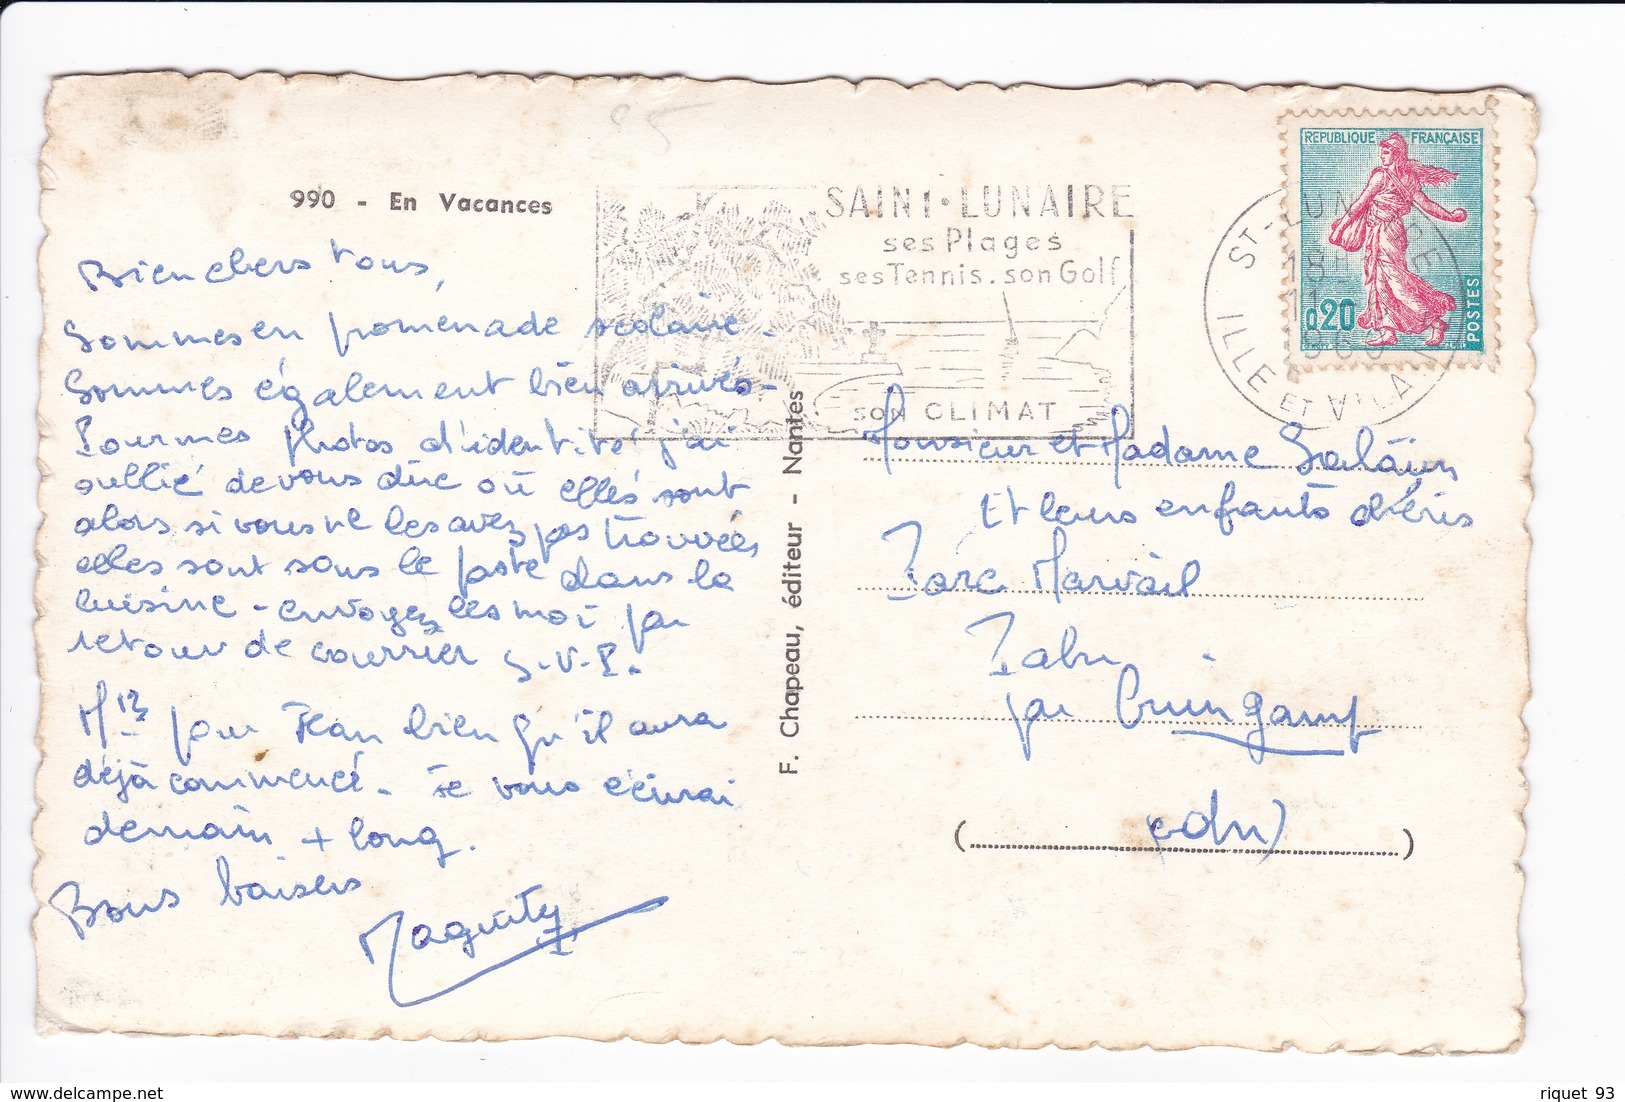 990 - En Vacances
Bien chers tous,
Sommes en promenade scolaire -
Sommes également bien arrivés -
Pour mes photos d'identité j'ai
oublié de vous dire où elles sont
alors si vous ne les avez pas trouvées
elles sont sous le poste dans la
cuisine - envoyez les moi par
retour de courrier S.V.P.
pour Jean bien qu'il aura
déjà commencé - Je vous écrirai
demain + long.
Bons baisers
Maguity
F. Chapeau, éditeur - Nantes
SAINT-LUNAIRE
ses Plages
ses Tennis. son Golf
SON CLIMAT
ST-LUNAIRE
ILLE ET VILAINE
REPUBLIQUE FRANÇAISE
0,20
POSTES
Monsieur et Madame Salaün
Et leurs enfants chéris
Parc Marvail
Pabu
par Guingamp
(cdn)
delcampe.net
riquet 93